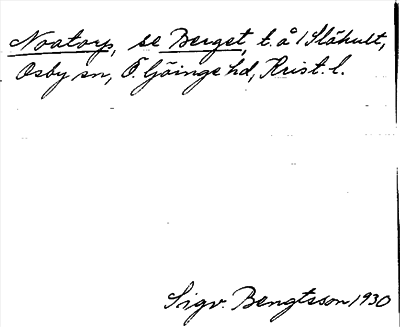 Noatorp, se Berget, t. å 1 Slähult,
Osby sn, Ö. Göinge hd, Krist. l.
Sigv. Bengtsson 1930